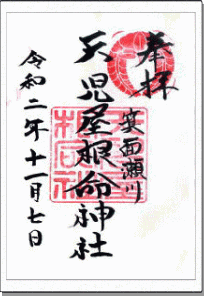 奉拝
箕面瀬川
天児屋根命神社
令和二年十一月七日